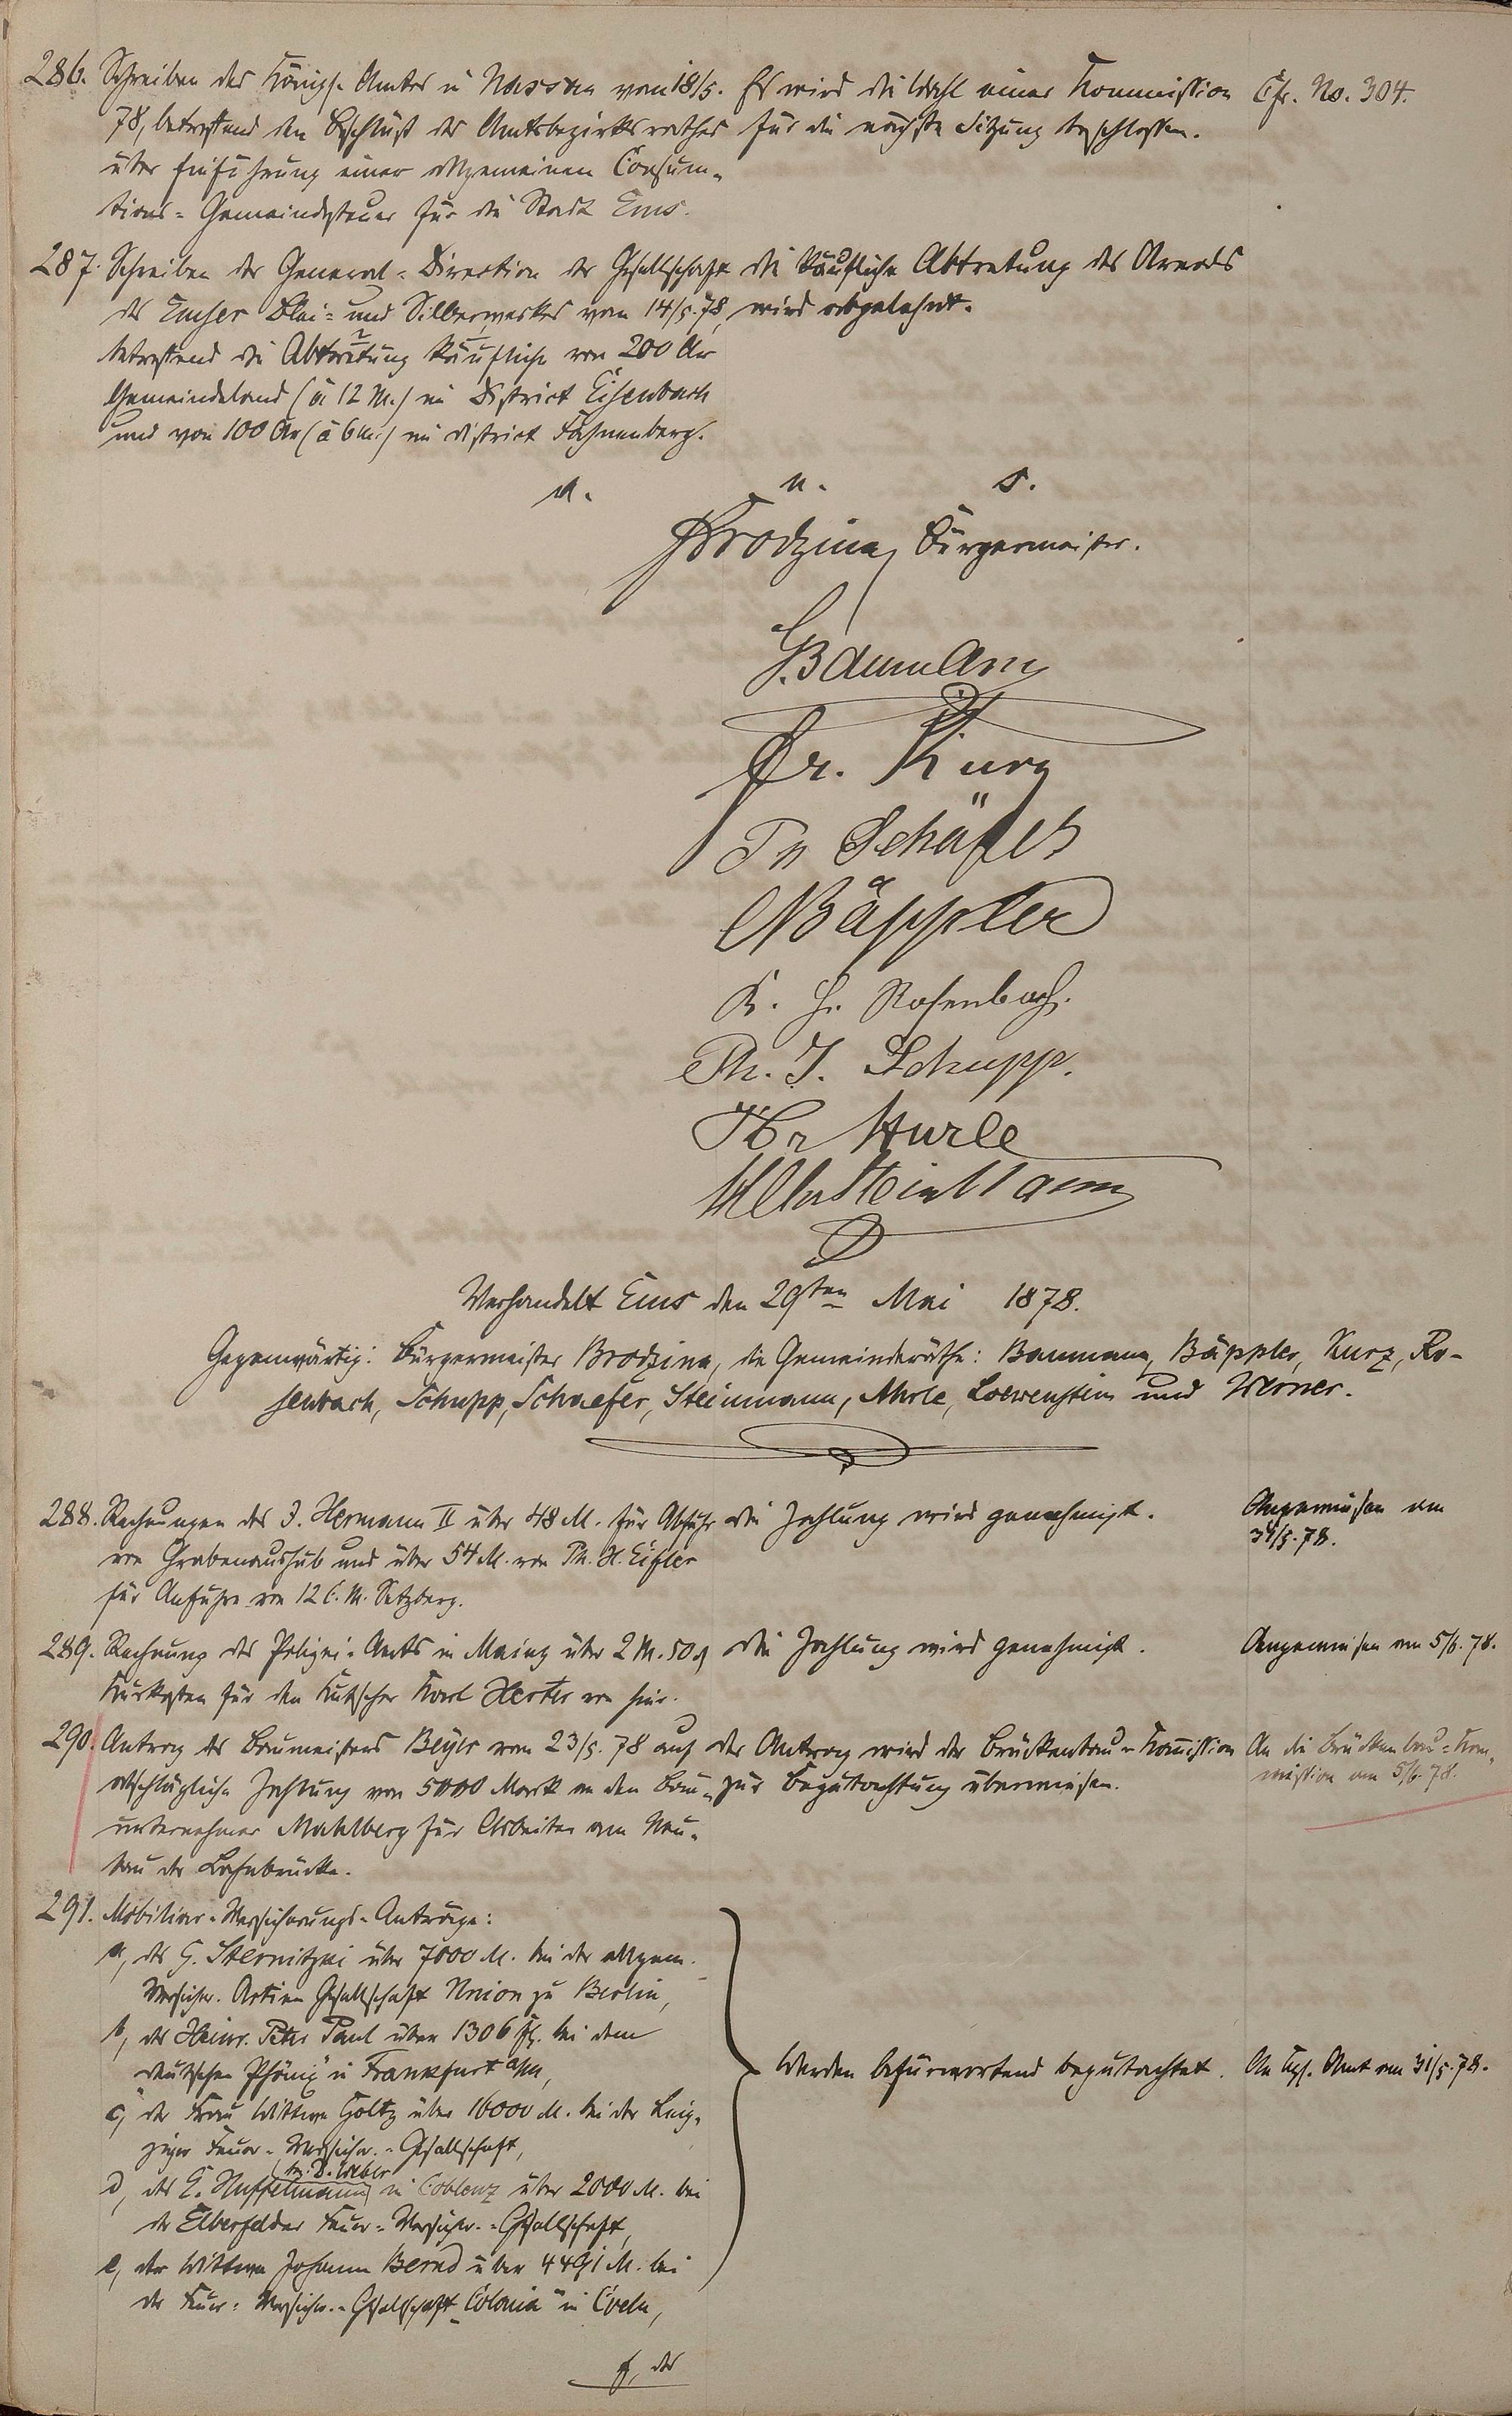 286. Schreiben des Königl. Amtes in Nassau vom 18/5.
78, betreffend den Beschluß des Amtsbezirksrathes
über Einführung einer allgemeinen Consum-
tions-Gemeindesteuer für die Stadt Ems.
Es wird die Wahl einer Kommission
für die nächste Sitzung beschlossen.
Cfr. No. 304.
287. Schreiben der General-Direction der Gesellschaft
des Emser Blei- und Silberwerkes vom 14/5.78,
betreffend die Abtretung käuflich von 200 Ar
Gemeindeland (à 12 M.) im District Eisenbach
und von 100 Ar (à 6 M.) im District Fahnenberg.
die käufliche Abtretung des Areals
wird abgelehnt.
a. u. s.
Brodzina, Bürgermeister.
Baumann
Dr. Kurz
Schäfer
Bäppler
K. H. Rosenbach.
Ph. J. Schupp.
Steinmann
Verhandelt Ems den 29ten Mai 1878.
Gegenwärtig: Bürgermeister Brodzina, die Gemeinderäthe: Baumann, Bäppler, Kurz, Ro-
senbach, Schupp, Schaefer, Steinmann, Loewenstein und Werner.
288. Rechnungen des J. Hermann II über 48 M. für Abfuhr
von Grabenaushub und über 54 M. von Ph. H. Eisler
für Anfuhre von 12 C. M.
die Zahlung wird genehmigt.
Angewiesen am
31/5.78.
289. Rechnung des Polizei-Amts in Mainz über 2 M. 50 ₰
Kurkosten für den Kutscher Karl Herter von hier.
die Zahlung wird genehmigt.
Angewiesen am 5/6.78.
290. Antrag des Baumeisters Beyer vom 23/5.78 auf
abschlägliche Zahlung von 5000 Mark an den Bau-
unternehmer Mahlberg für Arbeiten am Neu-
bau der Lahnbrücke.
der Antrag wird der Brückenbau-Kommission
zur Begutachtung überwiesen.
An die Brückenbau-Kom-
mission am 5/6.78.
291. Mobiliar-Versicherungs-Anträge:
a, des G. Sternitzki über 7000 M. bei der allgem.
Versicher. Actien Gesellschaft Union zu Berlin,
b, des Heinr. Peter Paul über 1306 fl. bei dem
deutschen Phönix" in Frankfurt a/M,
c, der Frau Wittwe Goltz über 16000 M. bei der Leip-
ziger Feuer-Versicher.-Gesellschaft,
(bei D. Weber)
d, des E. Huffelmann in Coblenz über 2000 M. bei
der Elberfelder Feuer-Versicher.-Gesellschaft,
e, der Wittwe Johann Bernd über 4491 M. bei
der Feuer-Versicher.-Gesellschaft „Colonia" in Coeln,
Werden befürwortend begutachtet.
An Kgl. Amt am 31/5.78.
f, des